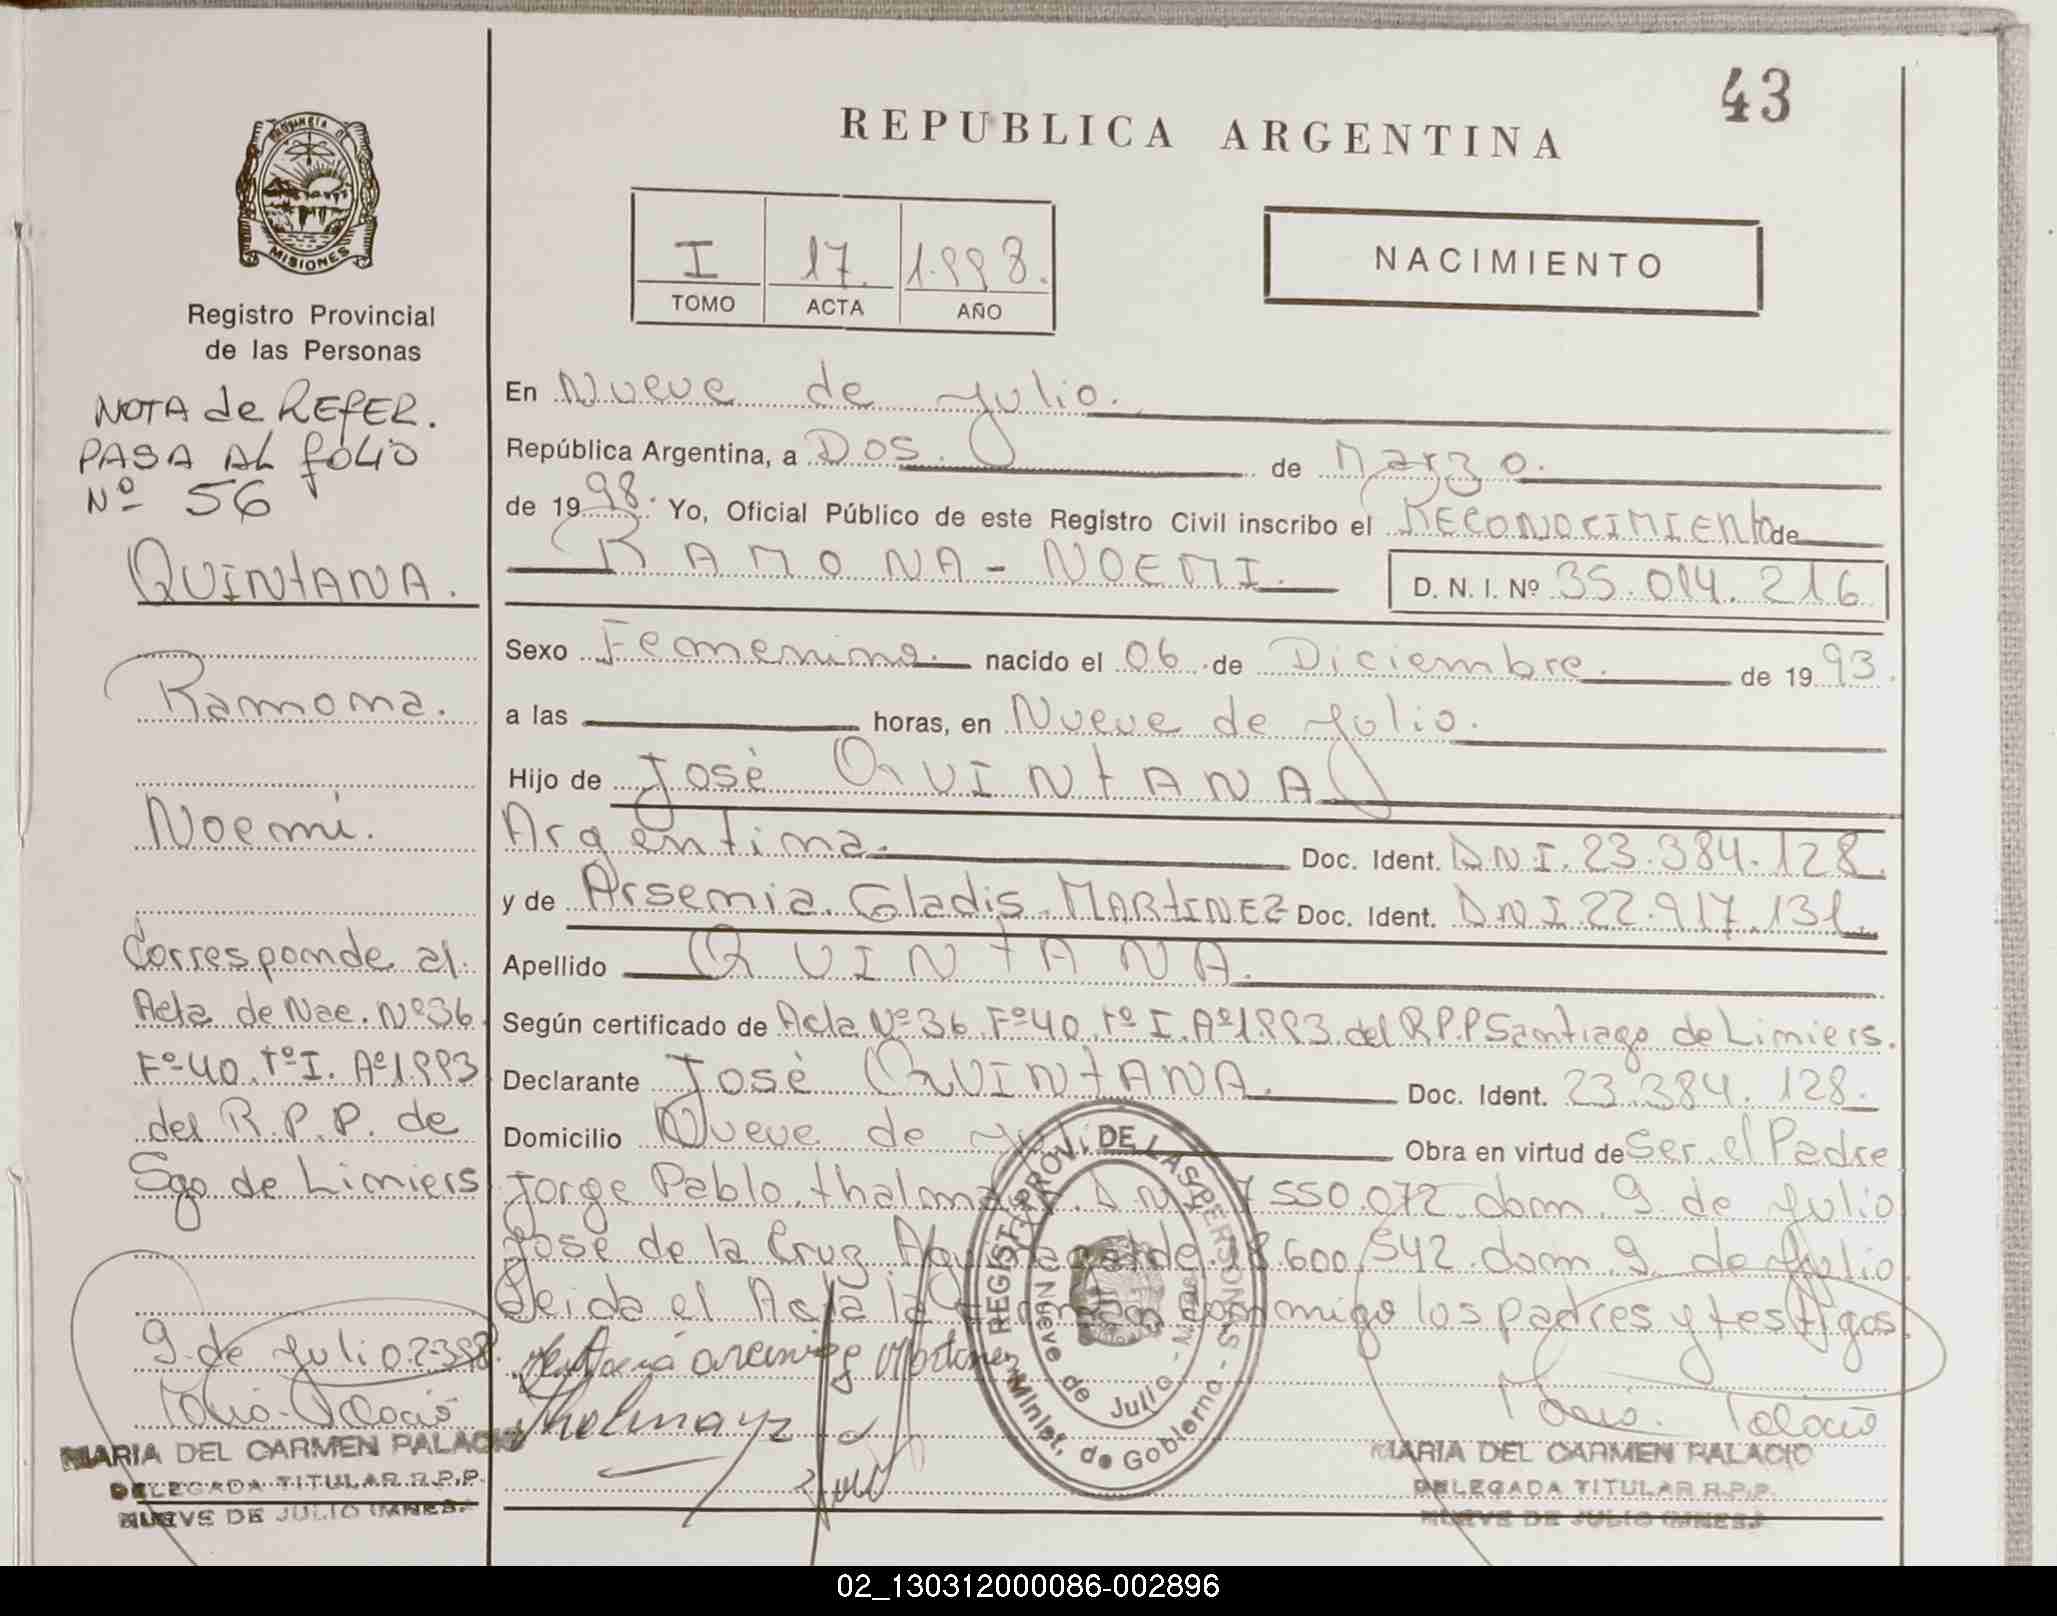 43
REPUBLICA ARGENTINA
PROVINCIA DE
MISIONES
Registro Provincial
de las Personas
I 17. 1.993.
TOMO ACTA AÑO
NACIMIENTO
NOTA de REFER.
PASA AL folio
Nº 56
QUINtANA.
Ramona.
Noemi.
Corresponde al
Acta de Nac. Nº 36
Fº 40. tº I. Aº 1993
del R.P.P. de
Sgo de Limiers
9 de Julio 2-3-98.
MARIA DEL CARMEN PALACIO
DELEGADA TITULAR R.P.P.
NUEVE DE JULIO (MNES.)
En Nueve de Julio.
República Argentina, a Dos. de Marzo.
de 1998. Yo, Oficial Público de este Registro Civil inscribo el RECONOCIMIENto de
RAMONA - NOEMI. D. N. I. Nº 35.014.216
Sexo Femenino. nacido el 06 de Diciembre. de 1993.
a las horas, en Nueve de Julio.
Hijo de José QUINtANA
Argentina. Doc. Ident. D.N.I. 23.384.128
y de Arsemia Gladis MARtINEZ Doc. Ident. D.N.I 22.917.131
Apellido QUINtANA.
Según certificado de Acta Nº 36 Fº 40. tº I. Aº 1993 del R.P.P Santiago de Limiers.
Declarante José QUINtANA. Doc. Ident. 23.384.128.
Domicilio Nueve de Juli Obra en virtud de Ser el Padre
Jorge Pablo 550.072 dom. 9 de Julio
José de la Cruz 8.600.542 dom. 9 de Julio
Leida el Acta la conmigo los padres y testigos
REGIST. PROVI. DE LAS PERSONAS
Minist. de Gobierno
Nueve de Julio - Mnes
MARIA DEL CARMEN PALACIO
DELEGADA TITULAR R.P.P.
NUEVE DE JULIO (MNES.)
02_130312000086-002896